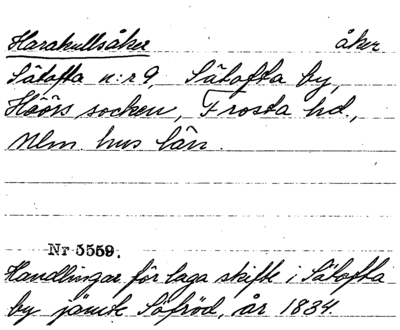 Harakullsåker åker
Sätofta n:r 9, Sätofta by,
Höörs socken, Frosta hd.,
Mlm. hus län.
Nr 5559.
Handlingar för laga skifte i Sätofta
by jämte Söfröd, år 1834.